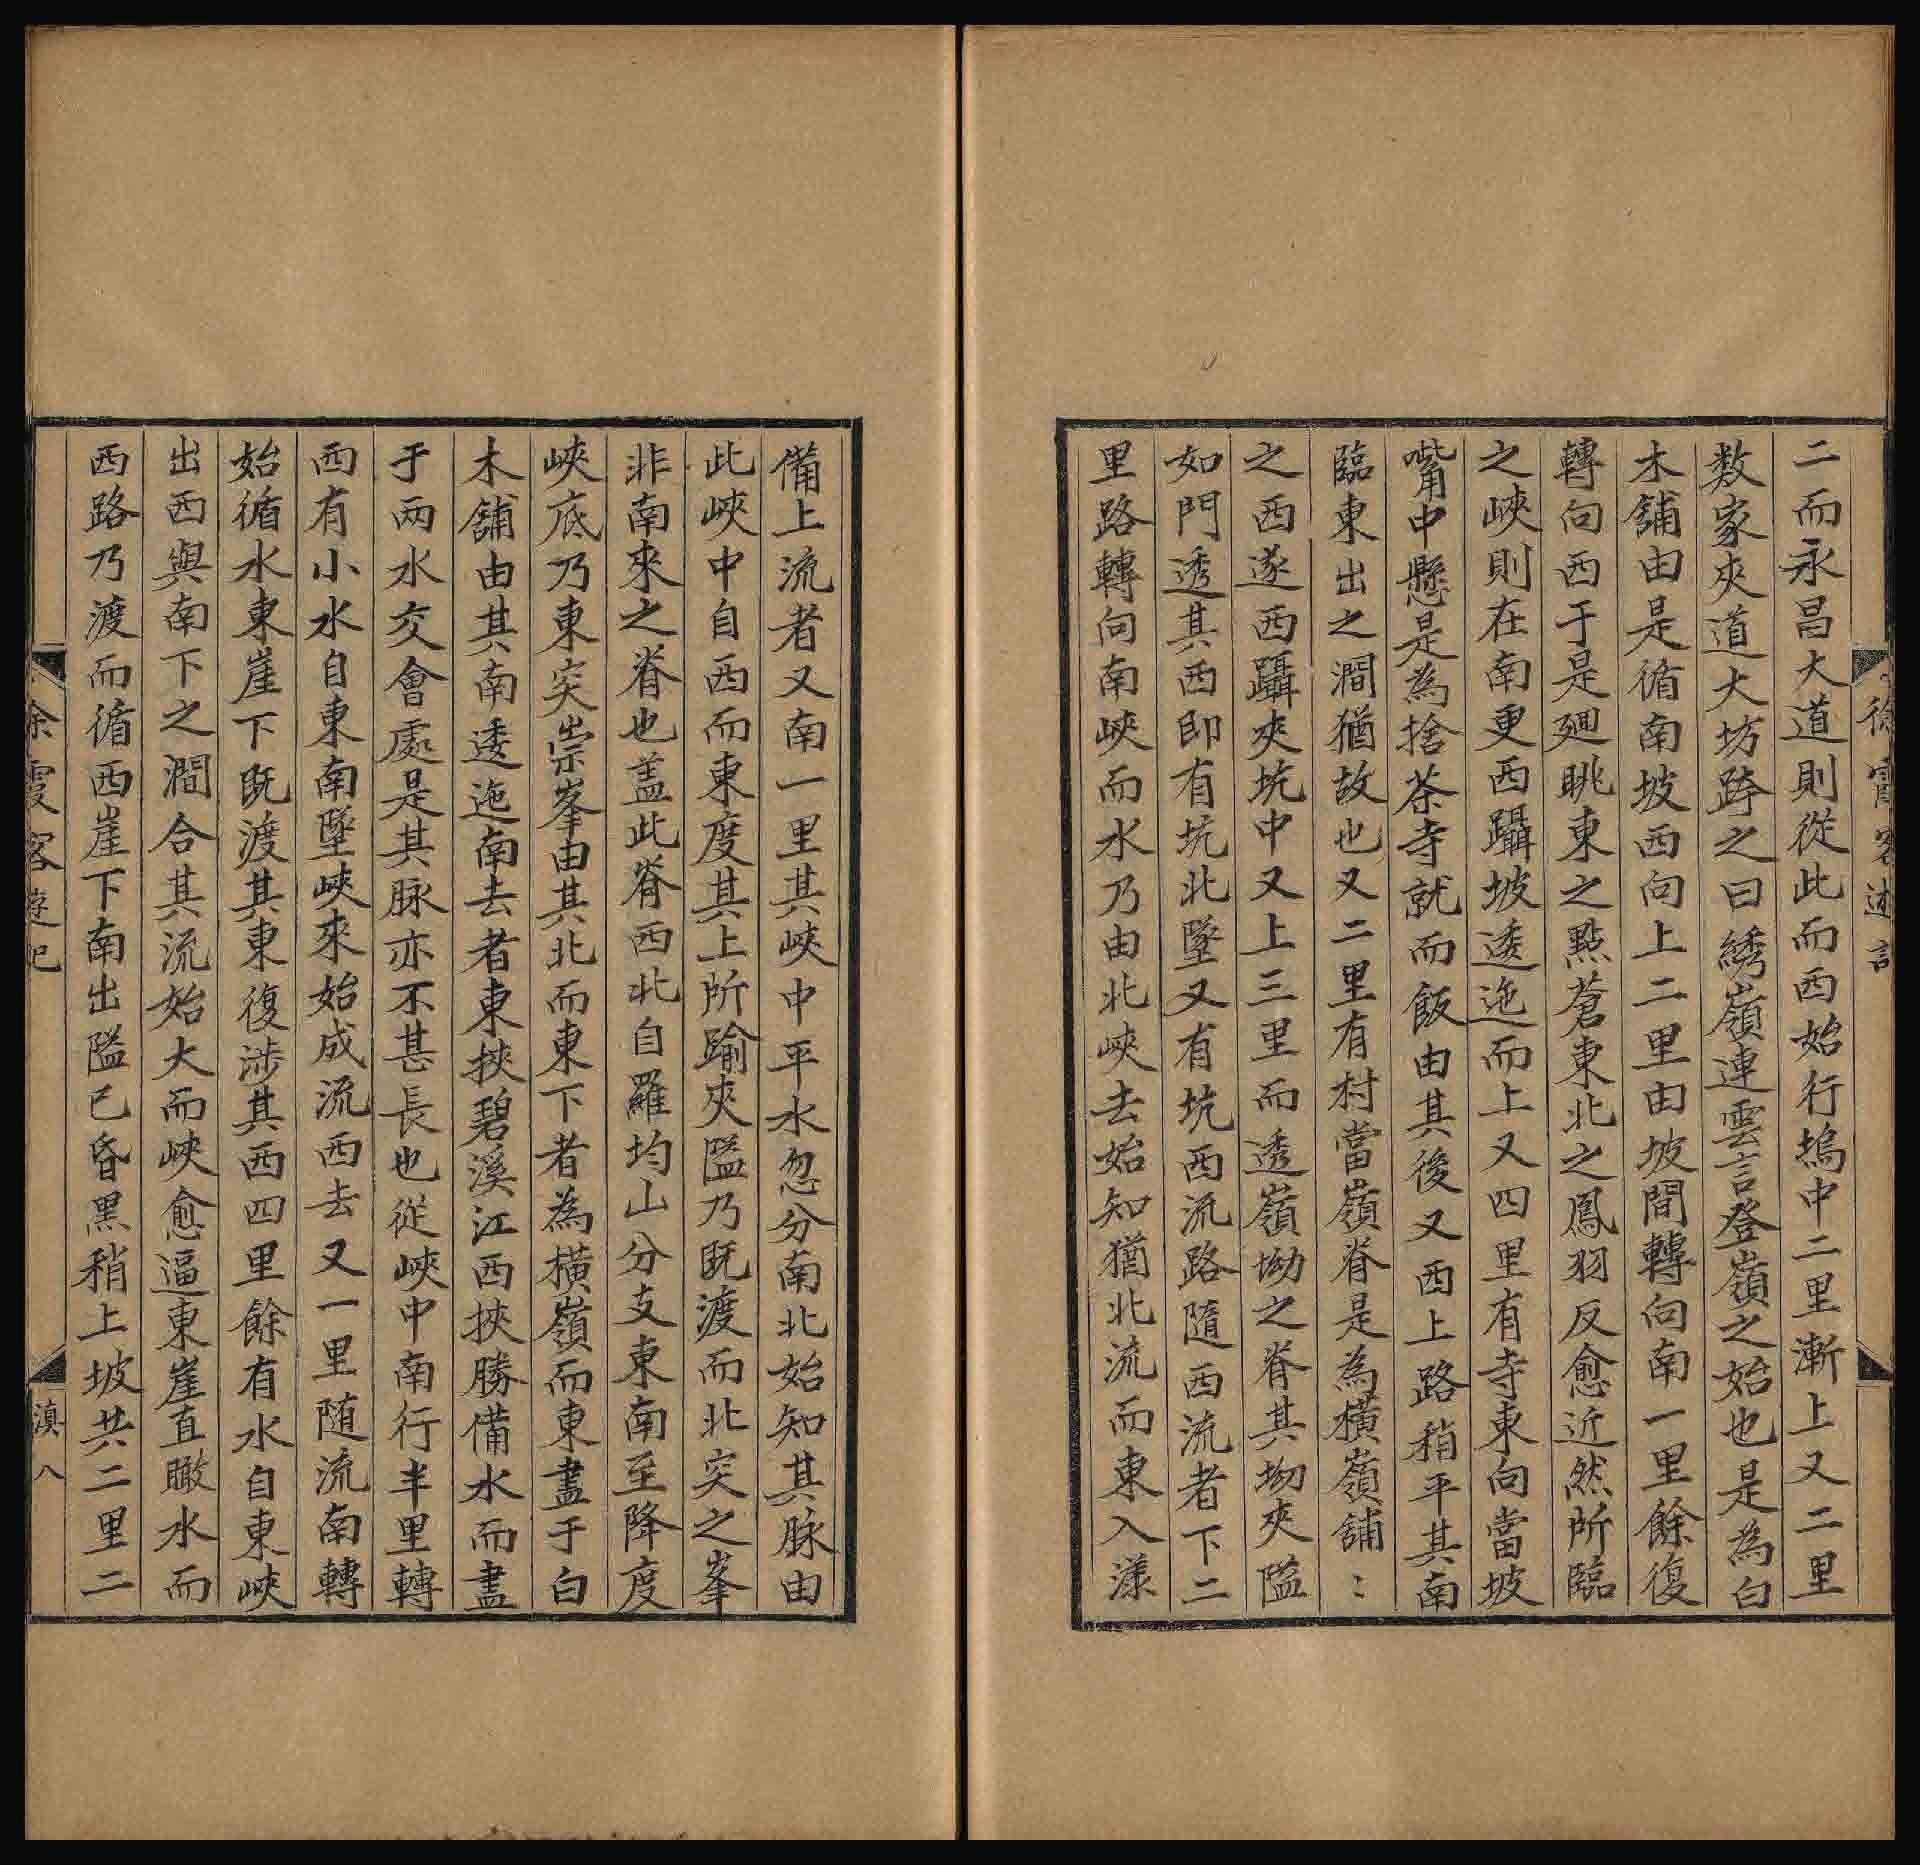 二而永昌大道則從此而西始行塢中二里漸上又二里
数家夾道大坊跨之曰綉嶺連雲言登嶺之始也是為白
木舖由是循南坡西向上二里由坡間轉向南一里餘復
轉向西于是廻眺東之點蒼東北之鳳羽反愈近然所臨
之峽則在南更西躡坡逶迤而上又四里有寺東向當坡
嘴中懸是為捨茶寺就而飯由其後又西上路稍平其南
臨東出之澗猶故也又二里有村當嶺脊是為横嶺舖〻
之西遂西躡夾坑中又上三里而透嶺坳之脊其坳夾隘
如門透其西即有坑北墜又有坑西流路隨西流者下二
里路轉向南峽而水乃由北峽去始知猶北流而東入漾
徐霞客遊記
備上流者又南一里其峽中平水忽分南北始知其脉由
此峽中自西而東度其上所踰夾隘乃既渡而北突之峯
非南來之脊也盖此脊西北自羅均山分支東南至降度
峽底乃東突崇峯由其北而東下者為横嶺而東盡于白
木舖由其南逶迤南去者東挾碧溪江西挾勝備水而盡
于两水交會處是其脉亦不甚長也從峽中南行半里轉
西有小水自東南墜峽來始成流西去又一里随流南轉
始循水東崖下既渡其東復涉其西四里餘有水自東峽
出西與南下之澗合其流始大而峽愈逼東崖直瞰水而
西路乃渡而循西崖下南出隘已昏黑稍上坡共二里二
徐霞客遊記
滇八